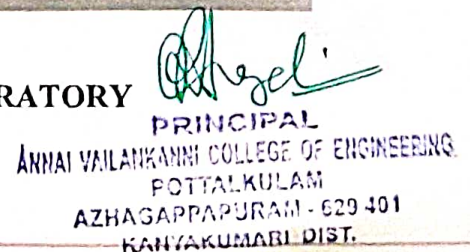 RATORY
PRINCIPAL
ANNAI VAILANKANNI COLLEGE OF ENGINEERING
POTTALKULAM
AZHAGAPPAPURAM - 629 401
KANYAKUMARI DIST.